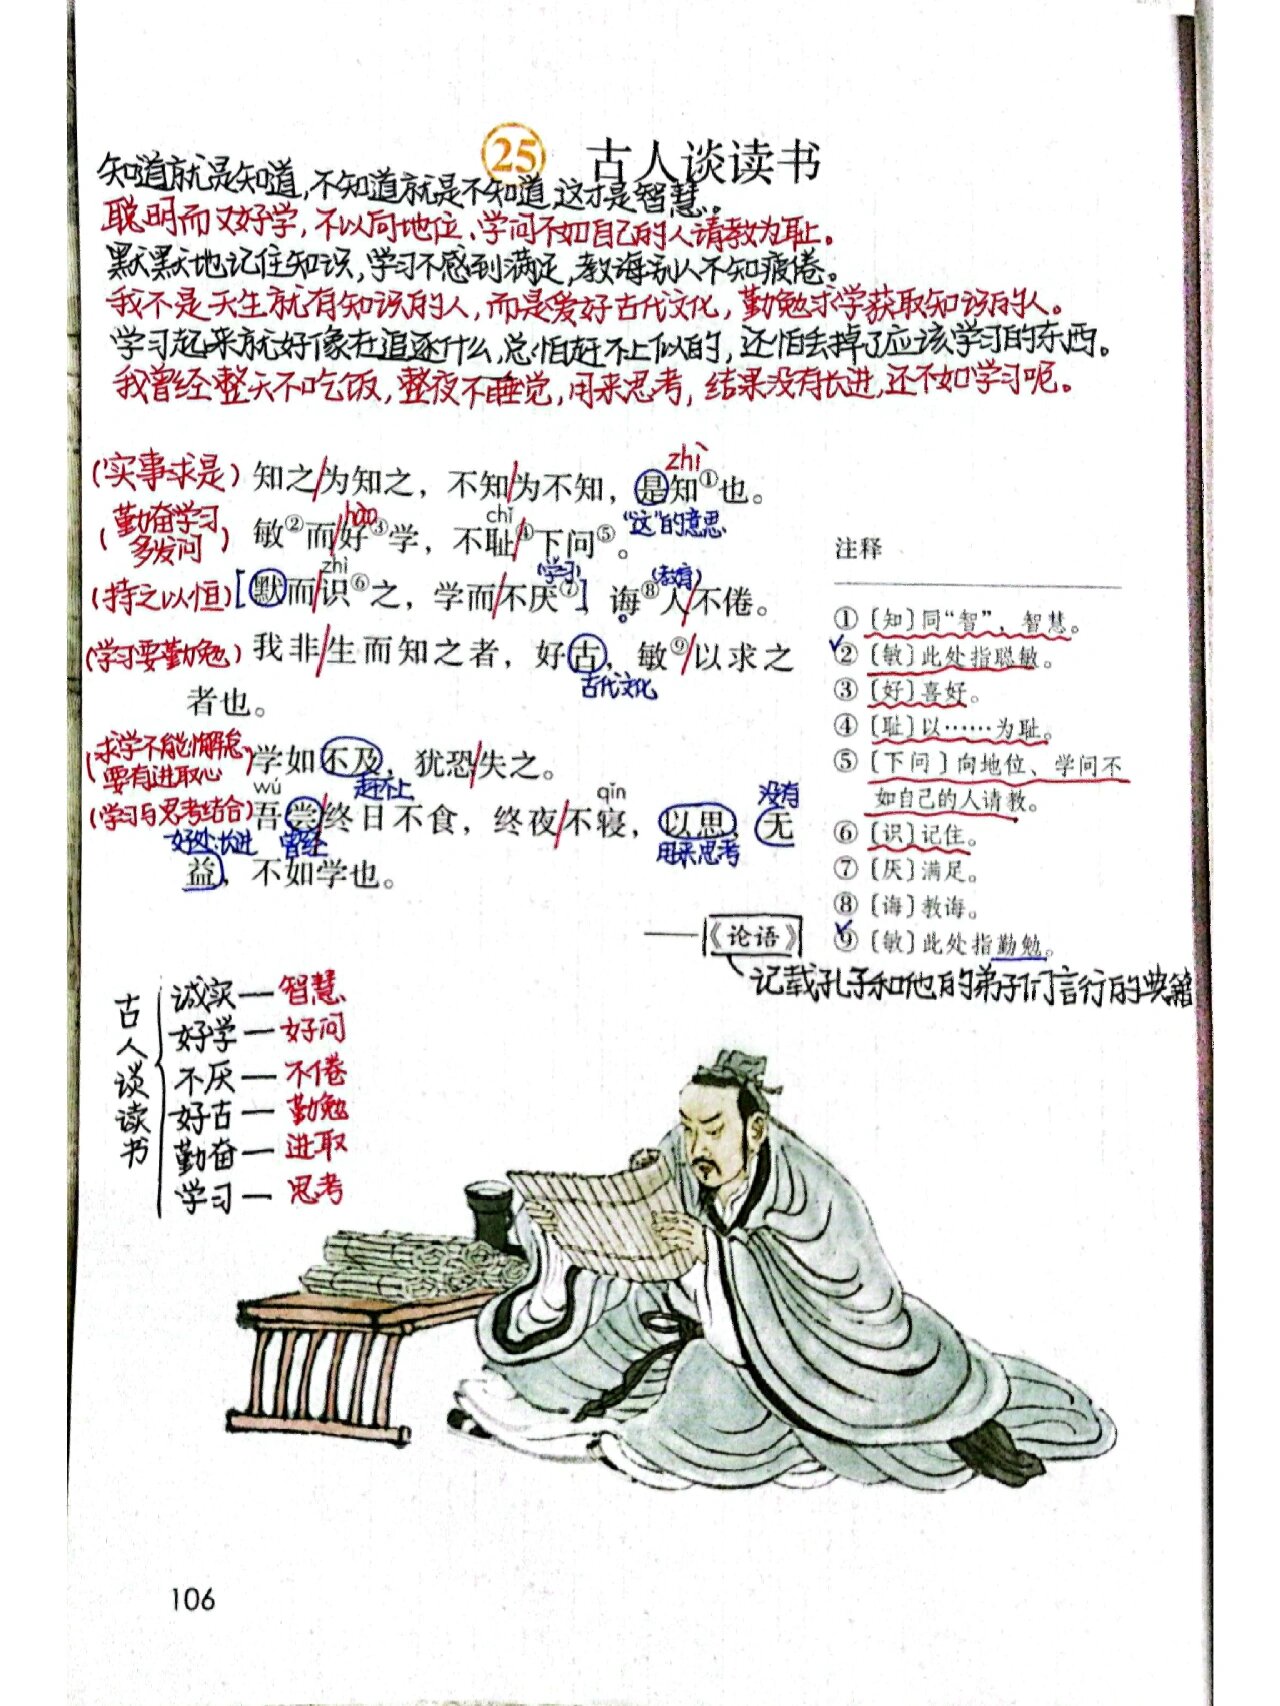 25 古人谈读书
知道就是知道,不知道就是不知道,这才是智慧。
聪明而又好学,不以向地位、学问不如自己的人请教为耻。
默默地记住知识,学习不感到满足,教诲别人不知疲倦。
我不是天生就有知识的人,而是爱好古代文化,勤勉求学获取知识的人。
学习起来就好像在追逐什么,总怕赶不上似的,还怕丢掉了应该学习的东西。
我曾经整天不吃饭,整夜不睡觉,用来思考,结果没有长进,还不如学习呢。
zhì
(实事求是) 知之/为知之,不知/为不知,是知①也。
"这"的意思
(勤奋学习 多发问)
hào chǐ
敏②而/好③学,不耻/④下问⑤。
zhì (学习) (教育)
(持之以恒) [默而/识⑥之,学而/不厌⑦] 诲⑧人/不倦。
(学习要勤勉) 我非/生而知之者,好古,敏⑨/以求之
古代文化
者也。
(求学不能懈怠 要有进取心)
学如不及,犹恐/失之。
赶不上
wú qǐn 没有
(学习与思考结合) 吾尝/终日不食,终夜/不寝,以思,无
好处.长进 曾经 用来思考
益,不如学也。
——《论语》
记载孔子和他的弟子们言行的典籍
注释
①〔知〕同“智”,智慧。
②〔敏〕此处指聪敏。
③〔好〕喜好。
④〔耻〕以……为耻。
⑤〔下问〕向地位、学问不
如自己的人请教。
⑥〔识〕记住。
⑦〔厌〕满足。
⑧〔诲〕教诲。
⑨〔敏〕此处指勤勉。
古人谈读书
诚实—智慧
好学—好问
不厌—不倦
好古—勤勉
勤奋—进取
学习—思考
106